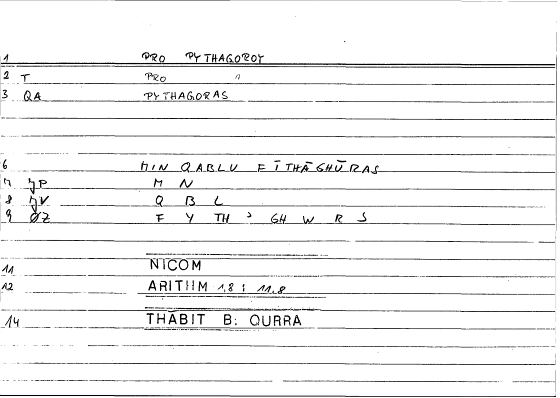 1 PRO PYTHAGOROY
2 T PRO "
3 QA PYTHAGORAS
6 MIN QABLU FĪTHĀGHŪRAS
7 JP M N
8 JV Q B L
9 ØZ F Y TH ' GH W R S
11 NICOM
12 ARITHM 1,8 : 11.8
14 THĀBIT B: QURRA